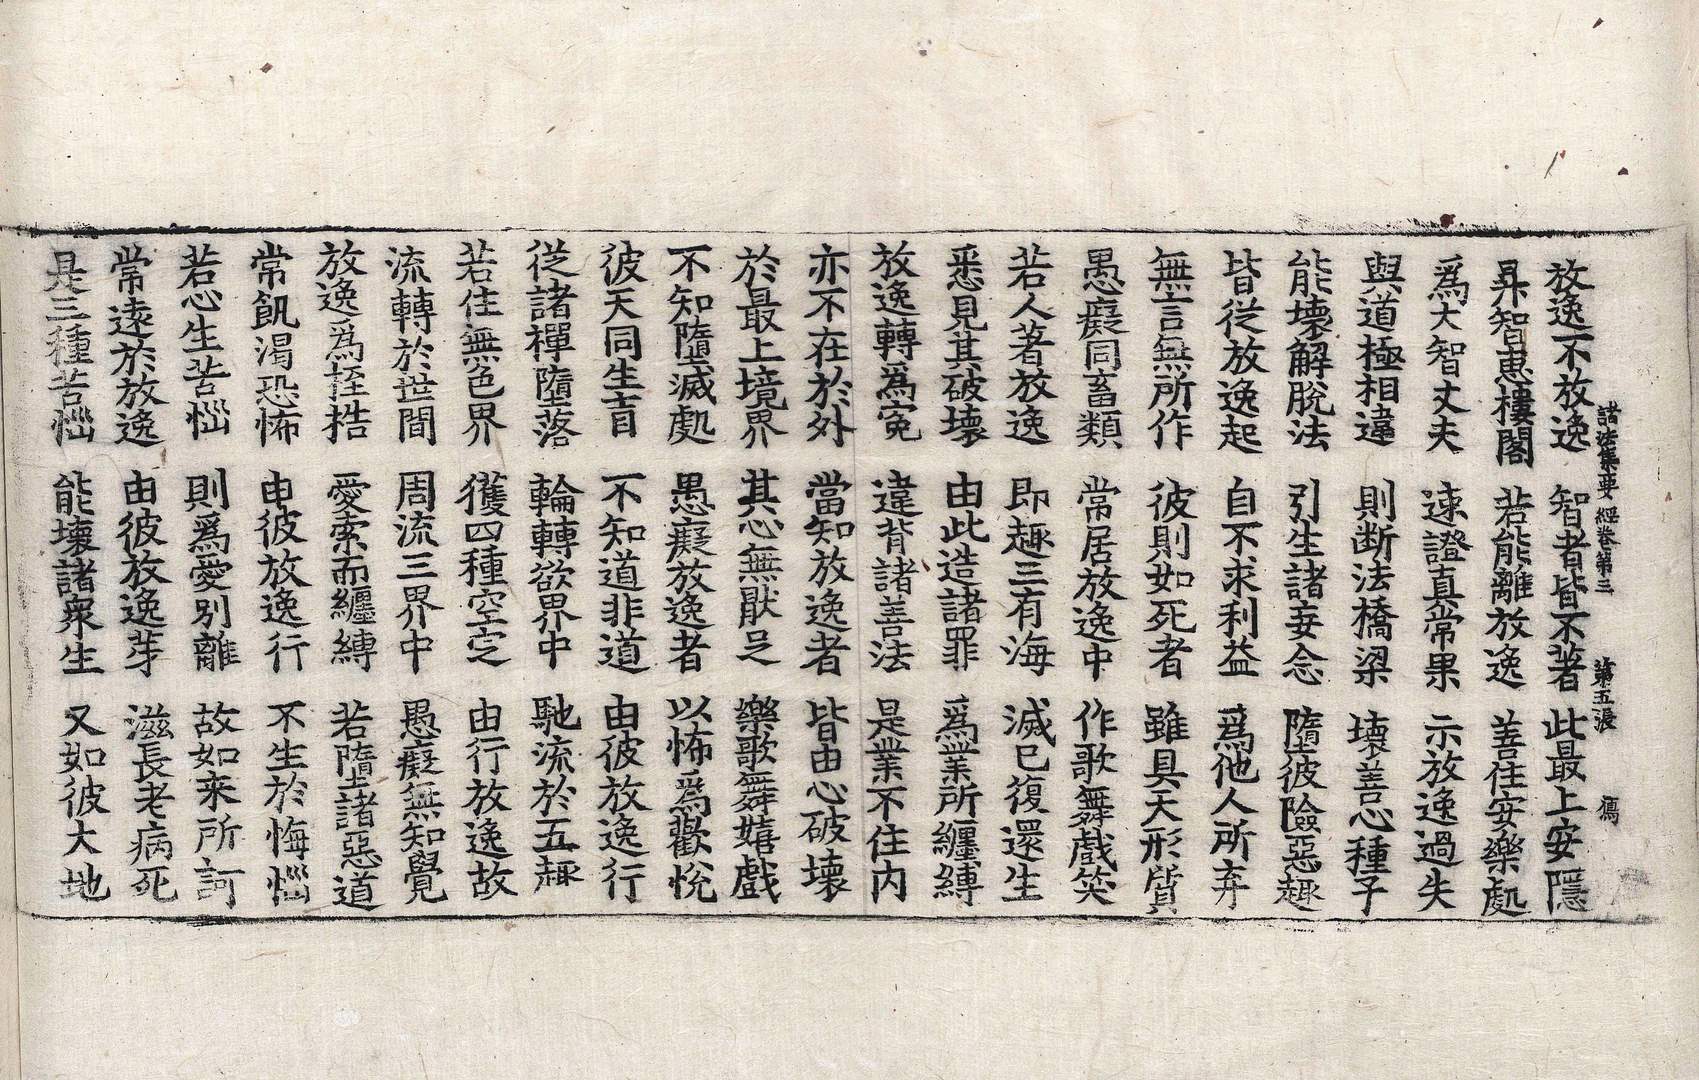 諸法集要經卷第三 第五張 馮
放逸不放逸 智者皆不著 此最上安隱
昇智惠樓閣 若能離放逸 善住安樂處
爲大智丈夫 速證真常果 示放逸過失
與道極相違 則断法橋梁 壞善心種子
能壞解脫法 引生諸妄念 墮彼險惡趣
皆從放逸起 自不求利益 爲他人所弃
無言無所作 彼則如死者 雖具天形質
愚癡同畜類 常居放逸中 作歌舞戲笑
若人著放逸 即趣三有海 滅已復還生
悉見其破壞 由此造諸罪 爲業所纏縛
放逸轉爲冤 違背諸善法 是業不住内
亦不在於外 當知放逸者 皆由心破壞
於最上境界 其心無猒足 樂歌舞嬉戲
不知墮滅處 愚癡放逸者 以怖爲歡悅
彼天同生盲 不知道非道 由彼放逸行
從諸禪墮落 輪轉欲界中 馳流於五趣
若住無色界 獲四種空定 由行放逸故
流轉於世間 周流三界中 愚癡無知覺
放逸爲桎梏 愛索而纏縛 若墮諸惡道
常飢渴恐怖 由彼放逸行 不生於悔惱
若心生苦惱 則爲愛別離 故如來所訶
常遠於放逸 由彼放逸芽 滋長老病死
是三種苦惱 能壞諸衆生 又如彼大地